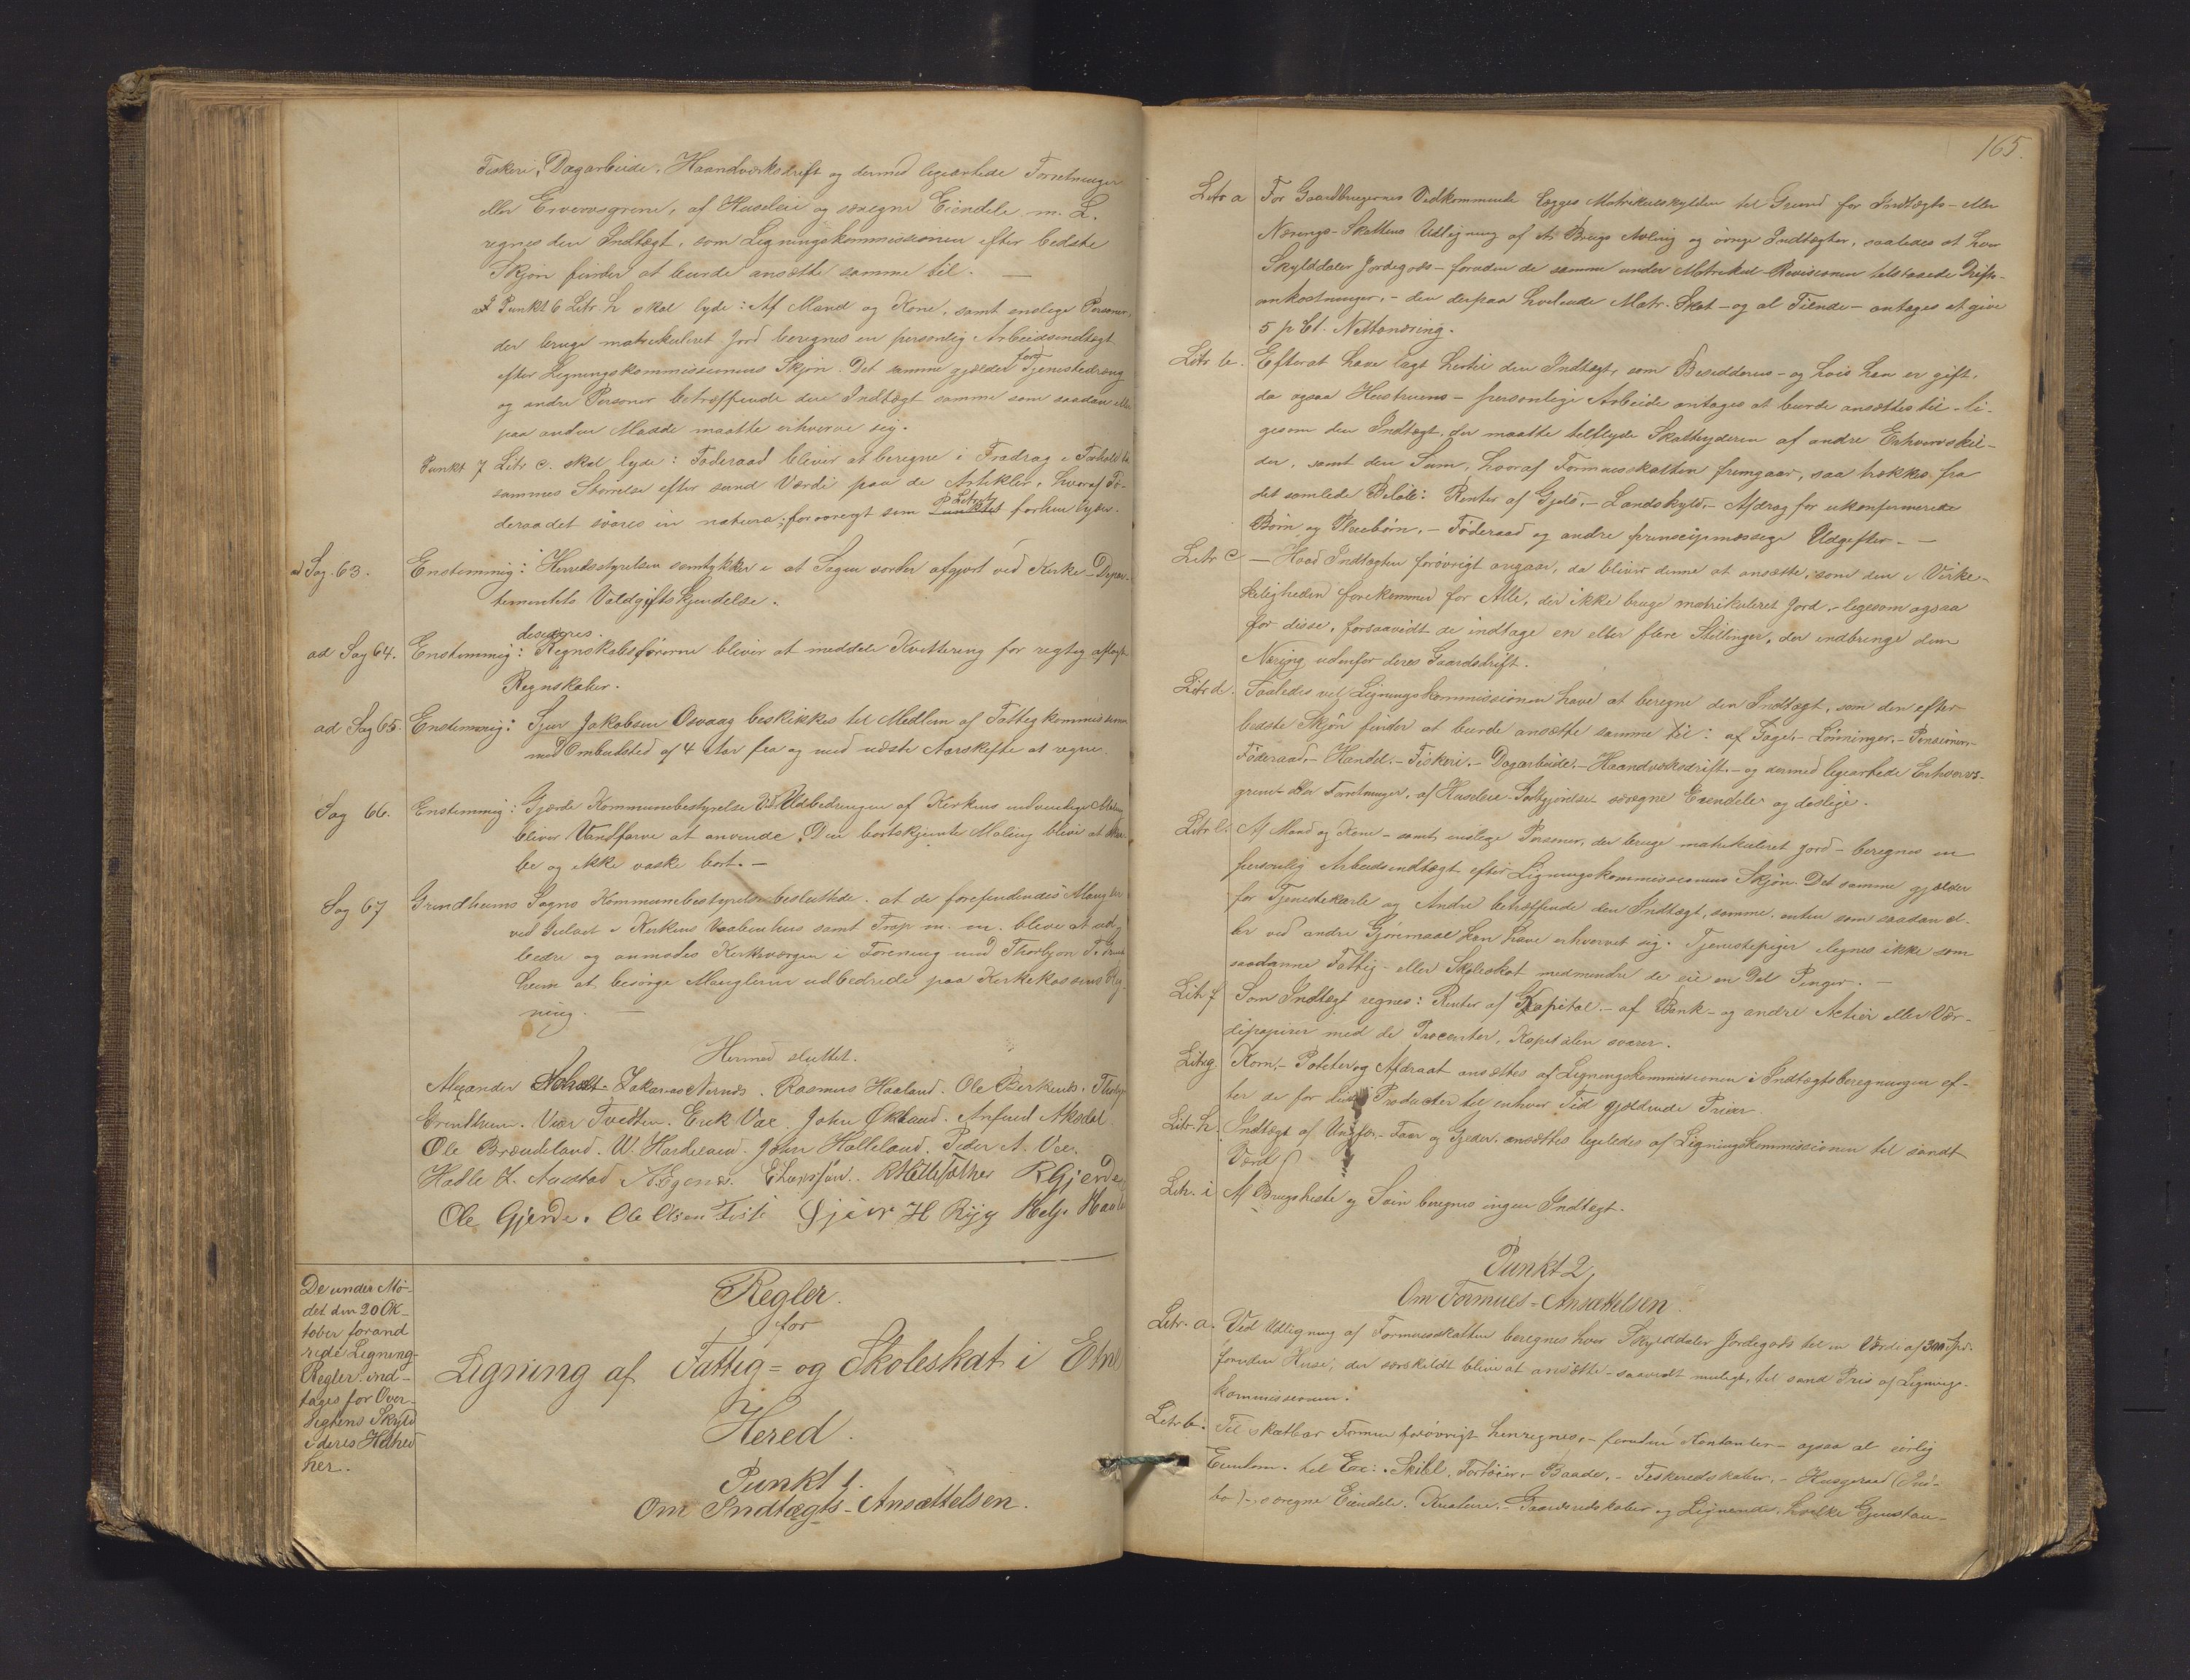 Fiskeri, Dagarbeide, Haandverksdrift og dermed ligeartede Forretninger
eller Ervervsgrene, af Huusleie og særegne Eiendele m. L.
regnes den Indtægt, som Ligningskommissionen efter bedste
Skjøn finder at burde ansætte samme til. —
Punkt 6 Litr. h skal lyde: Af Mand og Kone, samt enslige Personer,
der bruge matrikuleret Jord beregnes en personlig Arbeidsindtægt
efter Ligningskommissionens Skjøn. Det samme gjælder for Tjenestedreng
og andre Personer betræffende den Indtægt samme som saadan eller
paa anden Maade maatte erhverve sig.
Punkt 7 Litr. c. skal lyde: Føderaad bliver at beregne i Fradrag i Forhold til
sammes Størrelse efter sand Værdi paa de Artikler, hvoraf Fø-
deraadet svares in natura; forøvrigt som Litret Punktet forhen lyder.
ad Sag. 63. Enstemmig: Herredsstyrelsen samtykker i at Sagen vorder afgjort ved Kirke-Depar-
tementets Voldgiftskjendelse.
ad Sag 64. Enstemmig: Regnskabsførerne bliver at meddele Kvittering for rigtig aflagte
Regnskaber.
ad Sag 65. Enstemmig: Sjur Jakobsen Osvaag beskikkes til Medlem af Fattigkommissionen
med Ombudstid af 4 Aar fra og med næste Aarskifte at regne.
Sag 66. Enstemmig: Gjerde Kommunebestyrelse Ved Udbedringen af Kirkens indvendige Maling
bliver Vandfarve at anvende. Den bortskjemte Maling bliver at skra-
be og ikke vaske bort. —
Sag 67 Grindheims Sogns Kommunebestyrelse besluttede: at de forefindendes Mangler
ved Gulvet i Kirkens Vaabenhus samt Trap m. m. bliver at ud-
bedre og anmodes Kirkeværgen i Forening med Thorbjørn T. Grind-
heim at besørge Manglerne udbedrede paa Kirkekassens Reg-
ning. —
Hermed sluttet.
Alexander Zakarias Nernes. Rasmus Haaland. Ole Berkenes.
Grindheim. Vier Tvedten. Erik Vae. John Øktland. Anfind Aksdal
Ole Brændeland. W. Hardeland. John Halleland. Peder A. Vee.
Halle Z. Austad RGjerde
Ole Gjerde. Ole Olsen Fiste Sjur H Ryg Helge Haaland
De under Mø-
det den 20 Ok-
tober forand
rede Ligning-
Regler ind-
tages for Over-
sigtens Skyld
i deres Helhed
her.
Regler.
for
Ligning af Fattig= og Skoleskat i Etne
Hered.
Punkt 1.
Om Indtægts-Ansættelsen.
165.
Litr a For Gaardbrugernes Vedkommende lægges Matrikulskylden til Grund for Indtægts- eller
Nærings-Skattens Udligning af et Brugs Avling og øvrige Indtægter, saaledes at hver
Skylddaler Jordegods – foruden de samme under Matrikul-Revisionen tilstaaede Drifts-
omkostninger, – den derpaa hvilende Matr. Skat – og al Tiende – antages at give
5 p Ct. Nettonæring.
Litr b. Efterat have lagt hertil den Indtægt, som Besidderens – og hvis han er gift,
da ogsaa Hustruens – personlige Arbeide antages at burde ansættes til – li-
gesom den Indtægt, der maatte tilflyde Skatteyderen af andre Erhvervskil-
der, samt den Sum, hvoraf Formuesskatten fremgaar, saa trækkes fra
det samlede Beløb: Renter af Gjeld, – Landskyld, – Afdrag for ukonfirmerede
Børn og Pleiebørn, – Føderaad og andre principmæssige Udgifter. —
Litr c — Hvad Indtægten forøvrigt angaar, da bliver denne at ansætte, som den i Virke-
keligheden forekommer for Alle, der ikke bruge matrikuleret Jord, – ligesom ogsaa
for disse, forsaavidt de indtage en eller flere Stillinger, der indbringe dem
Næring udenfor deres Gaardsdrift.
Litr d. Saaledes vil Ligningskommissionen have at beregne den Indtægt, som den efter
bedste Skjøn finder at burde ansætte samme til: af Gage, – Lønninger, – Pensioner, –
Føderaad, – Handel, – Fiskeri, – Dagarbeide, – Haandverksdrift, – og dermed ligeartede Erhvervs-
grene eller Forretninger, af Huusleie – Godtgjørelse særegne Eiendele og deslige.
Litr e. Af Mand og Kone – samt enslige Personer, der bruge matrikuleret Jord – beregnes en
personlig Arbeidsindtægt efter Ligningskommissionens Skjøn. Det samme gjælder
for Tjenestekarle og Andre betræffende den Indtægt, samme, enten som saadan el-
ler ved andre Gjøremaal kan have erhvervet sig. Tjenestepiger ilignes ikke som
saadanne Fattig- eller Skoleskat medmindre de eie en Del Penger. —
Litr f Som Indtægt regnes: Renter af Kapital – af Bank- og andre Actier eller Vær-
dipapirer med de Procenter, Kapitalen svarer.
Litr g Korn, – Poteter og Afdraat ansættes af Ligningskommissionen i Indtægtsberegningen ef-
ter de for disse Producter til enhver Tid gjældende Priser.
Litr. h. Indtægt af Ungfæ, – Faar og Gjeder, ansættes ligeledes af Ligningskommissionen til sandt
Værd.
Litr. i Af Brugsheste og Svin beregnes ingen Indtægt.
Punkt 2,
Om Formues-Ansættelsen.
Litr. a. Ved Udligning af Formuesskatten beregnes hver Skylddaler Jordegods til en Værdi af 300 Spd.
foruden Huse, der særskildt blive at ansætte – saavidt muligt, til sand Pris af Lignings-
kommissionen.
Litr b. Til skatbar Formue forøvrigt henregnes, – foruden Kontanter – ogsaa al øvrig
Eiendom, til Ex: Skibe, Fartøier, – Baade, – Fiskeredskaber, – Husgeraad (Ind-
bo) –, særegne Eiendele, Kreature, – Gaardsredskaber og Lignende, hvilke Gjenstan-